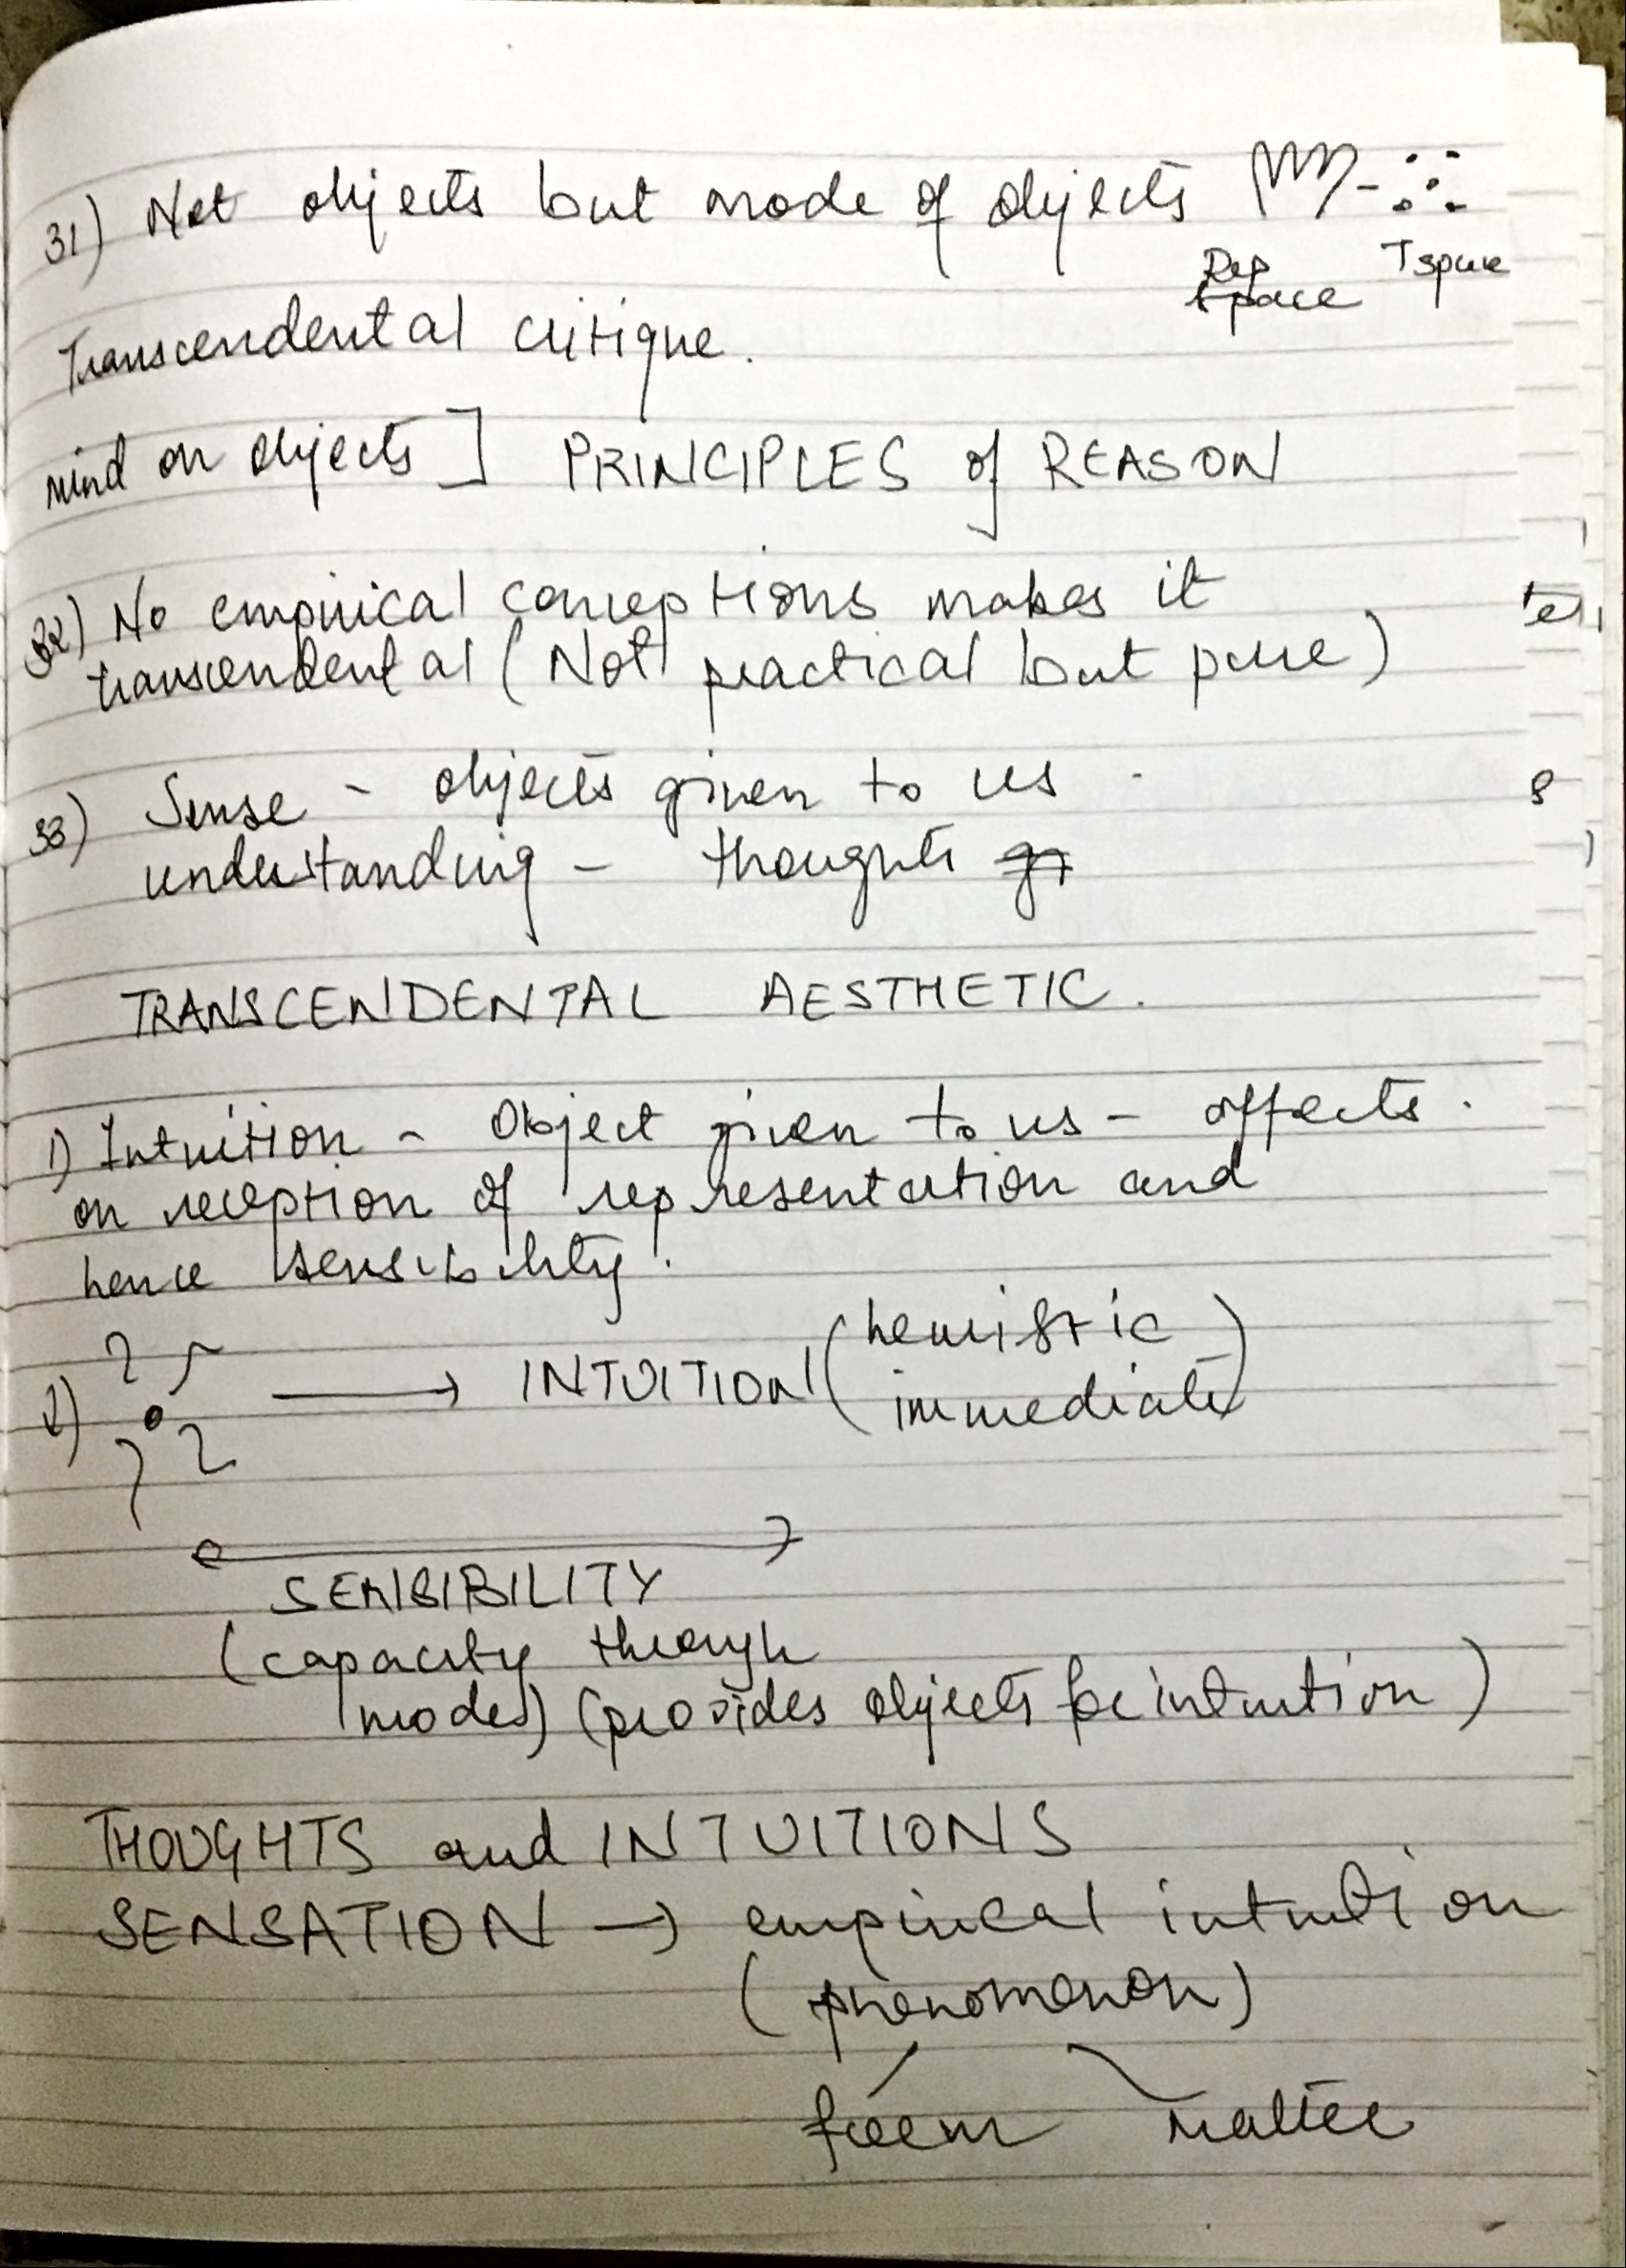 31) Not objects but mode of objects
Rep Tspace
Space
Transcendental critique.
mind on objects ] PRINCIPLES of REASON
32) No empirical conceptions makes it
transcendental (Not practical but pure)
33) Sense - objects given to us
understanding - thoughts
TRANSCENDENTAL AESTHETIC.
1) Intuition - Object given to us - affects.
on reception of representation and
hence sensibility.
2) → INTUITION (
immediate)
SENSIBILITY
(capacity through
modes) (provides objects for intuition)
THOUGHTS and INTUITIONS
SENSATION → empirical intuition
(phenomenon)
form matter